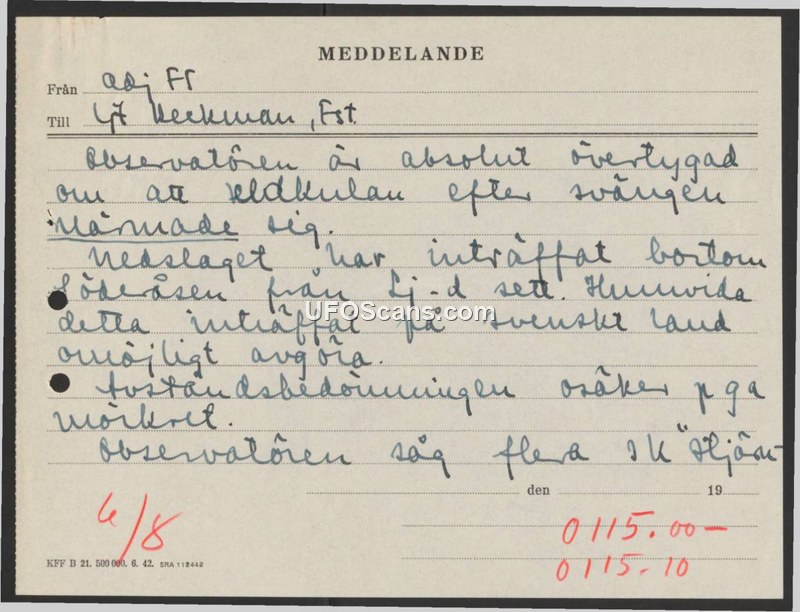 MEDDELANDE
Från adj FF
Till Heckman, Fst.
Observatören är absolut övertygad
om att eldkulan efter svängen
närmade sig.
Nedslaget har inträffat bortom
Söderåsen från Lj-d sett. Huruvida
detta inträffat på svenskt land
omöjligt avgöra.
Avståndsbedömningen osäker p g a
mörkret.
Observatören såg flera s k "stjärn-
den 19
6/8
0115.00–
0115-10
KFF B 21. 500 000. 6. 42. SRA 112442
UFOScans.com